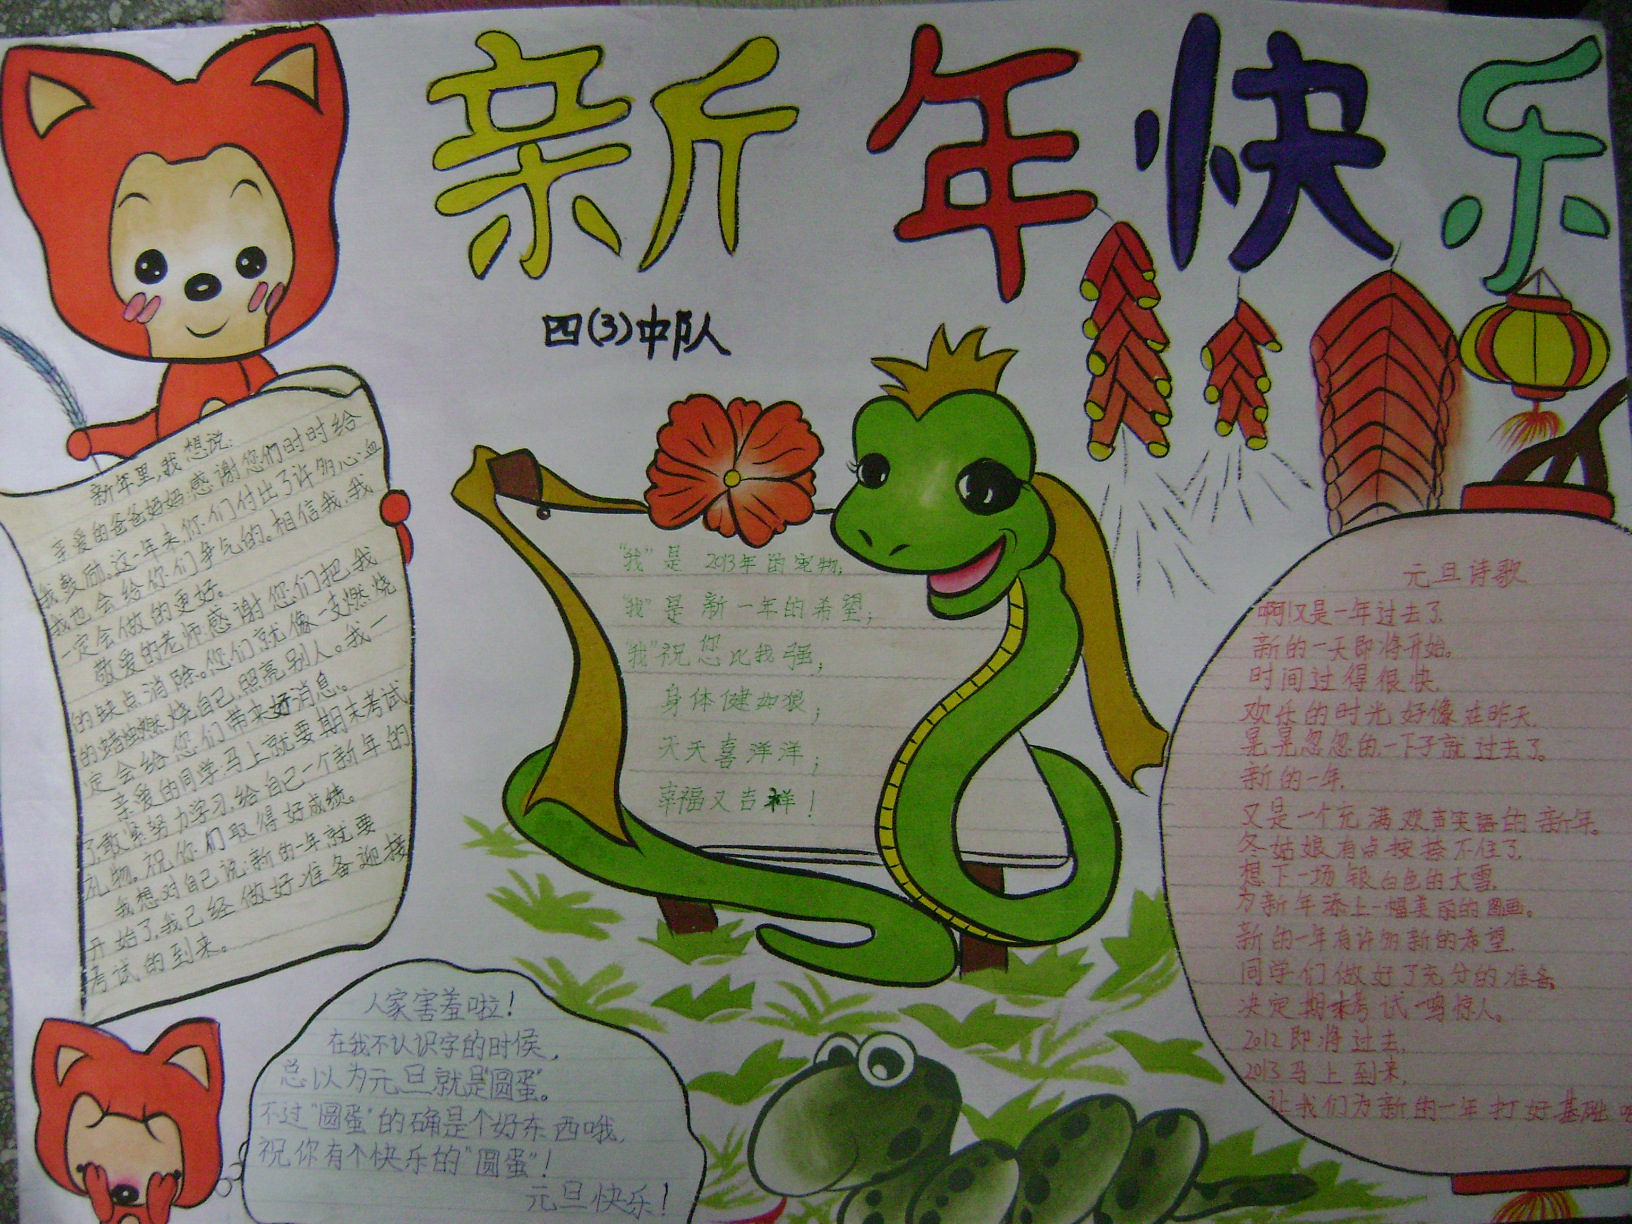 新年快乐
四(3)中队
新年里,我想说:
亲爱的爸爸妈妈:感谢您们时时给
我鼓励。这一年来,你们付出了许多心血
我也会给你们争气的。相信我,我
一定会做的更好。
敬爱的老师,感谢您们把我
的缺点消除。您们就像一支燃烧
的蜡烛燃烧自己,照亮别人。我一
定会给您们带来好消息。
亲爱的同学,马上就要期末考试
了,敢紧努力学习,给自己一个新年的
礼物。祝你们取得好成绩。
我想对自己说:新的一年就要
开始了,我已经做好准备迎接
考试的到来。
“我”是2013年的宠物;
“我”是新一年的希望;
“我”祝您比我强;
身体健如狼;
天天喜洋洋;
幸福又吉祥!
元旦诗歌
啊!又是一年过去了.
新的一天即将开始。
时间过得很快,
欢乐的时光好像在昨天.
晃晃忽忽的一下子就过去了。
新的一年,
又是一个充满欢声笑语的新年。
冬姑娘有点按捺不住了,
想下一场银白色的大雪.
为新年添上一幅美丽的图画。
新的一年有许多新的希望.
同学们做好了充分的准备
决定期末考试一鸣惊人。
2012即将过去,
2013马上到来,
让我们为新的一年打好基础
人家害羞啦!
在我不认识字的时侯,
总以为元旦就是“圆蛋”。
不过“圆蛋”的确是个好东西哦,
祝你有个快乐的“圆蛋”!
元旦快乐!